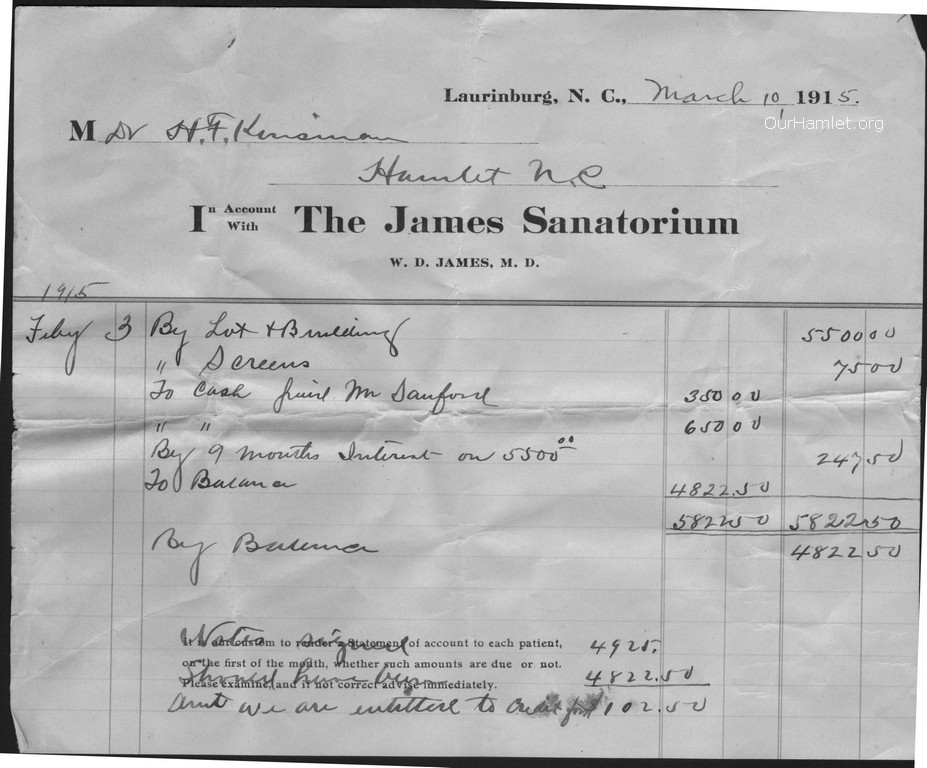 Laurinburg, N. C., March 10, 1915.
OurHamlet.org
M Dr H. F. Kinsman
Hamlet N. C
In Account With The James Sanatorium
W. D. JAMES, M. D.
1915
Feby 3 By Lot + Building 5500 00
" Screens 75 00
To Cash Mr Sanford 350 00
" " 650 00
By 9 months Interest on 5500 00 247 50
To Balance 4822.50
5822 50 5822 50
By Balance 4822 50
Notes signed 4925.
It is our custom to render a Statement of account to each patient,
on the first of the month, whether such amounts are due or not.
should have been 4822.50
Please examine, and if not correct advise immediately.
Amt we are entitled to Credit for 102.50